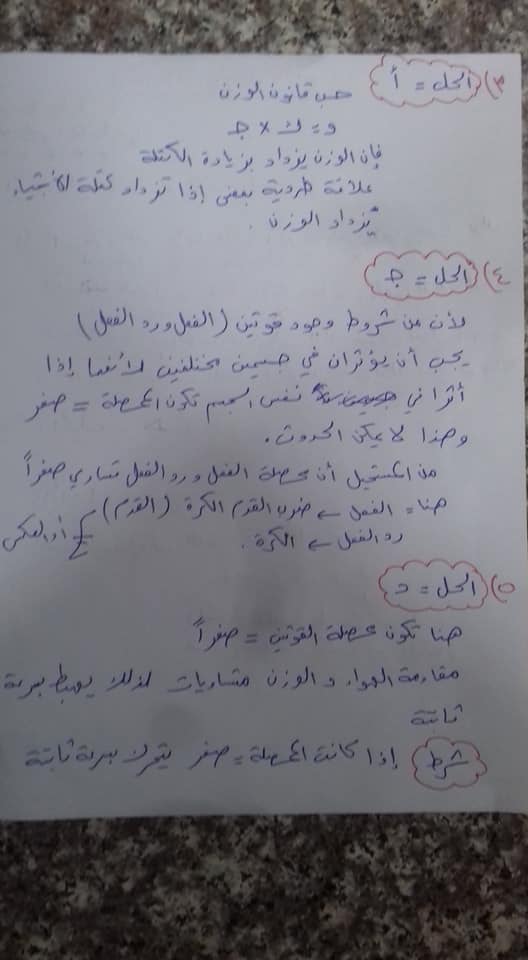 ٣) الحل = أ
حسب قانون الوزن
و = ك × جـ
فإن الوزن يزداد بزيادة الكتلة
علاقة طردية بمعنى إذا تزداد كتلة الأشياء
يزداد الوزن.
٤) الحل = جـ
لأن من شروط وجود قوتين (الفعل ورد الفعل)
يجب أن يؤثران في جسمين مختلفين لأنهما إذا
أثرا في نفس الجسم تكون المحصلة = صفر
وهذا لا يمكن الحدوث.
من المستحيل أن محصلة الفعل ورد الفعل تساوي صفراً
هنا = الفعل ← ضرب القدم الكرة (القدم) أو العكس
رد الفعل ← الكرة.
٥) الحل = د
هنا تكون محصلة القوتين = صفراً
مقاومة الهواء والوزن متساويات لذلك يهبط بسرعة
ثابتة
شرط إذا كانت المحصلة = صفر يتحرك بسرعة ثابتة